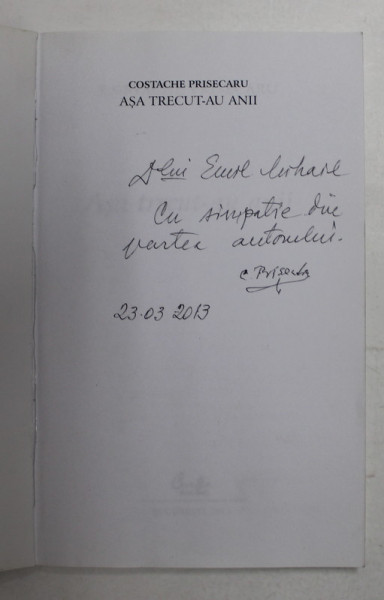 COSTACHE PRISECARU
AȘA TRECUT-AU ANII
Dlui Emil Mihail
Cu simpatie din
partea autorului.
C Prisecaru
23-03 2013